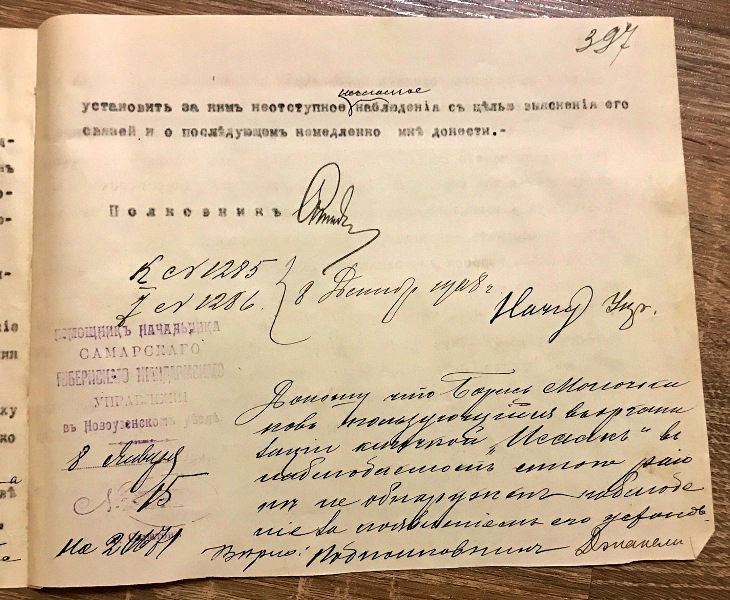 397
негласное
установить за нимъ неотступное наблюденія съ цѣлью выясненія его
связей и о послѣдующемъ немедленно мнѣ донести.-
Полковникъ
К № 1285
№ 1286. 8 Декабр 1908 г.
Начу Упр.
ПОМОЩНИКЪ НАЧАЛЬНИКА
САМАРСКАГО
ГУБЕРНСКАГО ЖАНДАРМСКАГО
УПРАВЛЕНІЯ
въ Новоузенскомъ уѣздѣ.
8 Января
№ 15
на
Доношу что Борисъ Молочни
ковъ пользующійся въ органи
заціи кличкой „Исаакъ“ въ
наблюдаемомъ мною раіо
нѣ не обнаруженъ наблюде
ніе за появленіемъ его установ.
Вѣрно: Подполковникъ Джапели